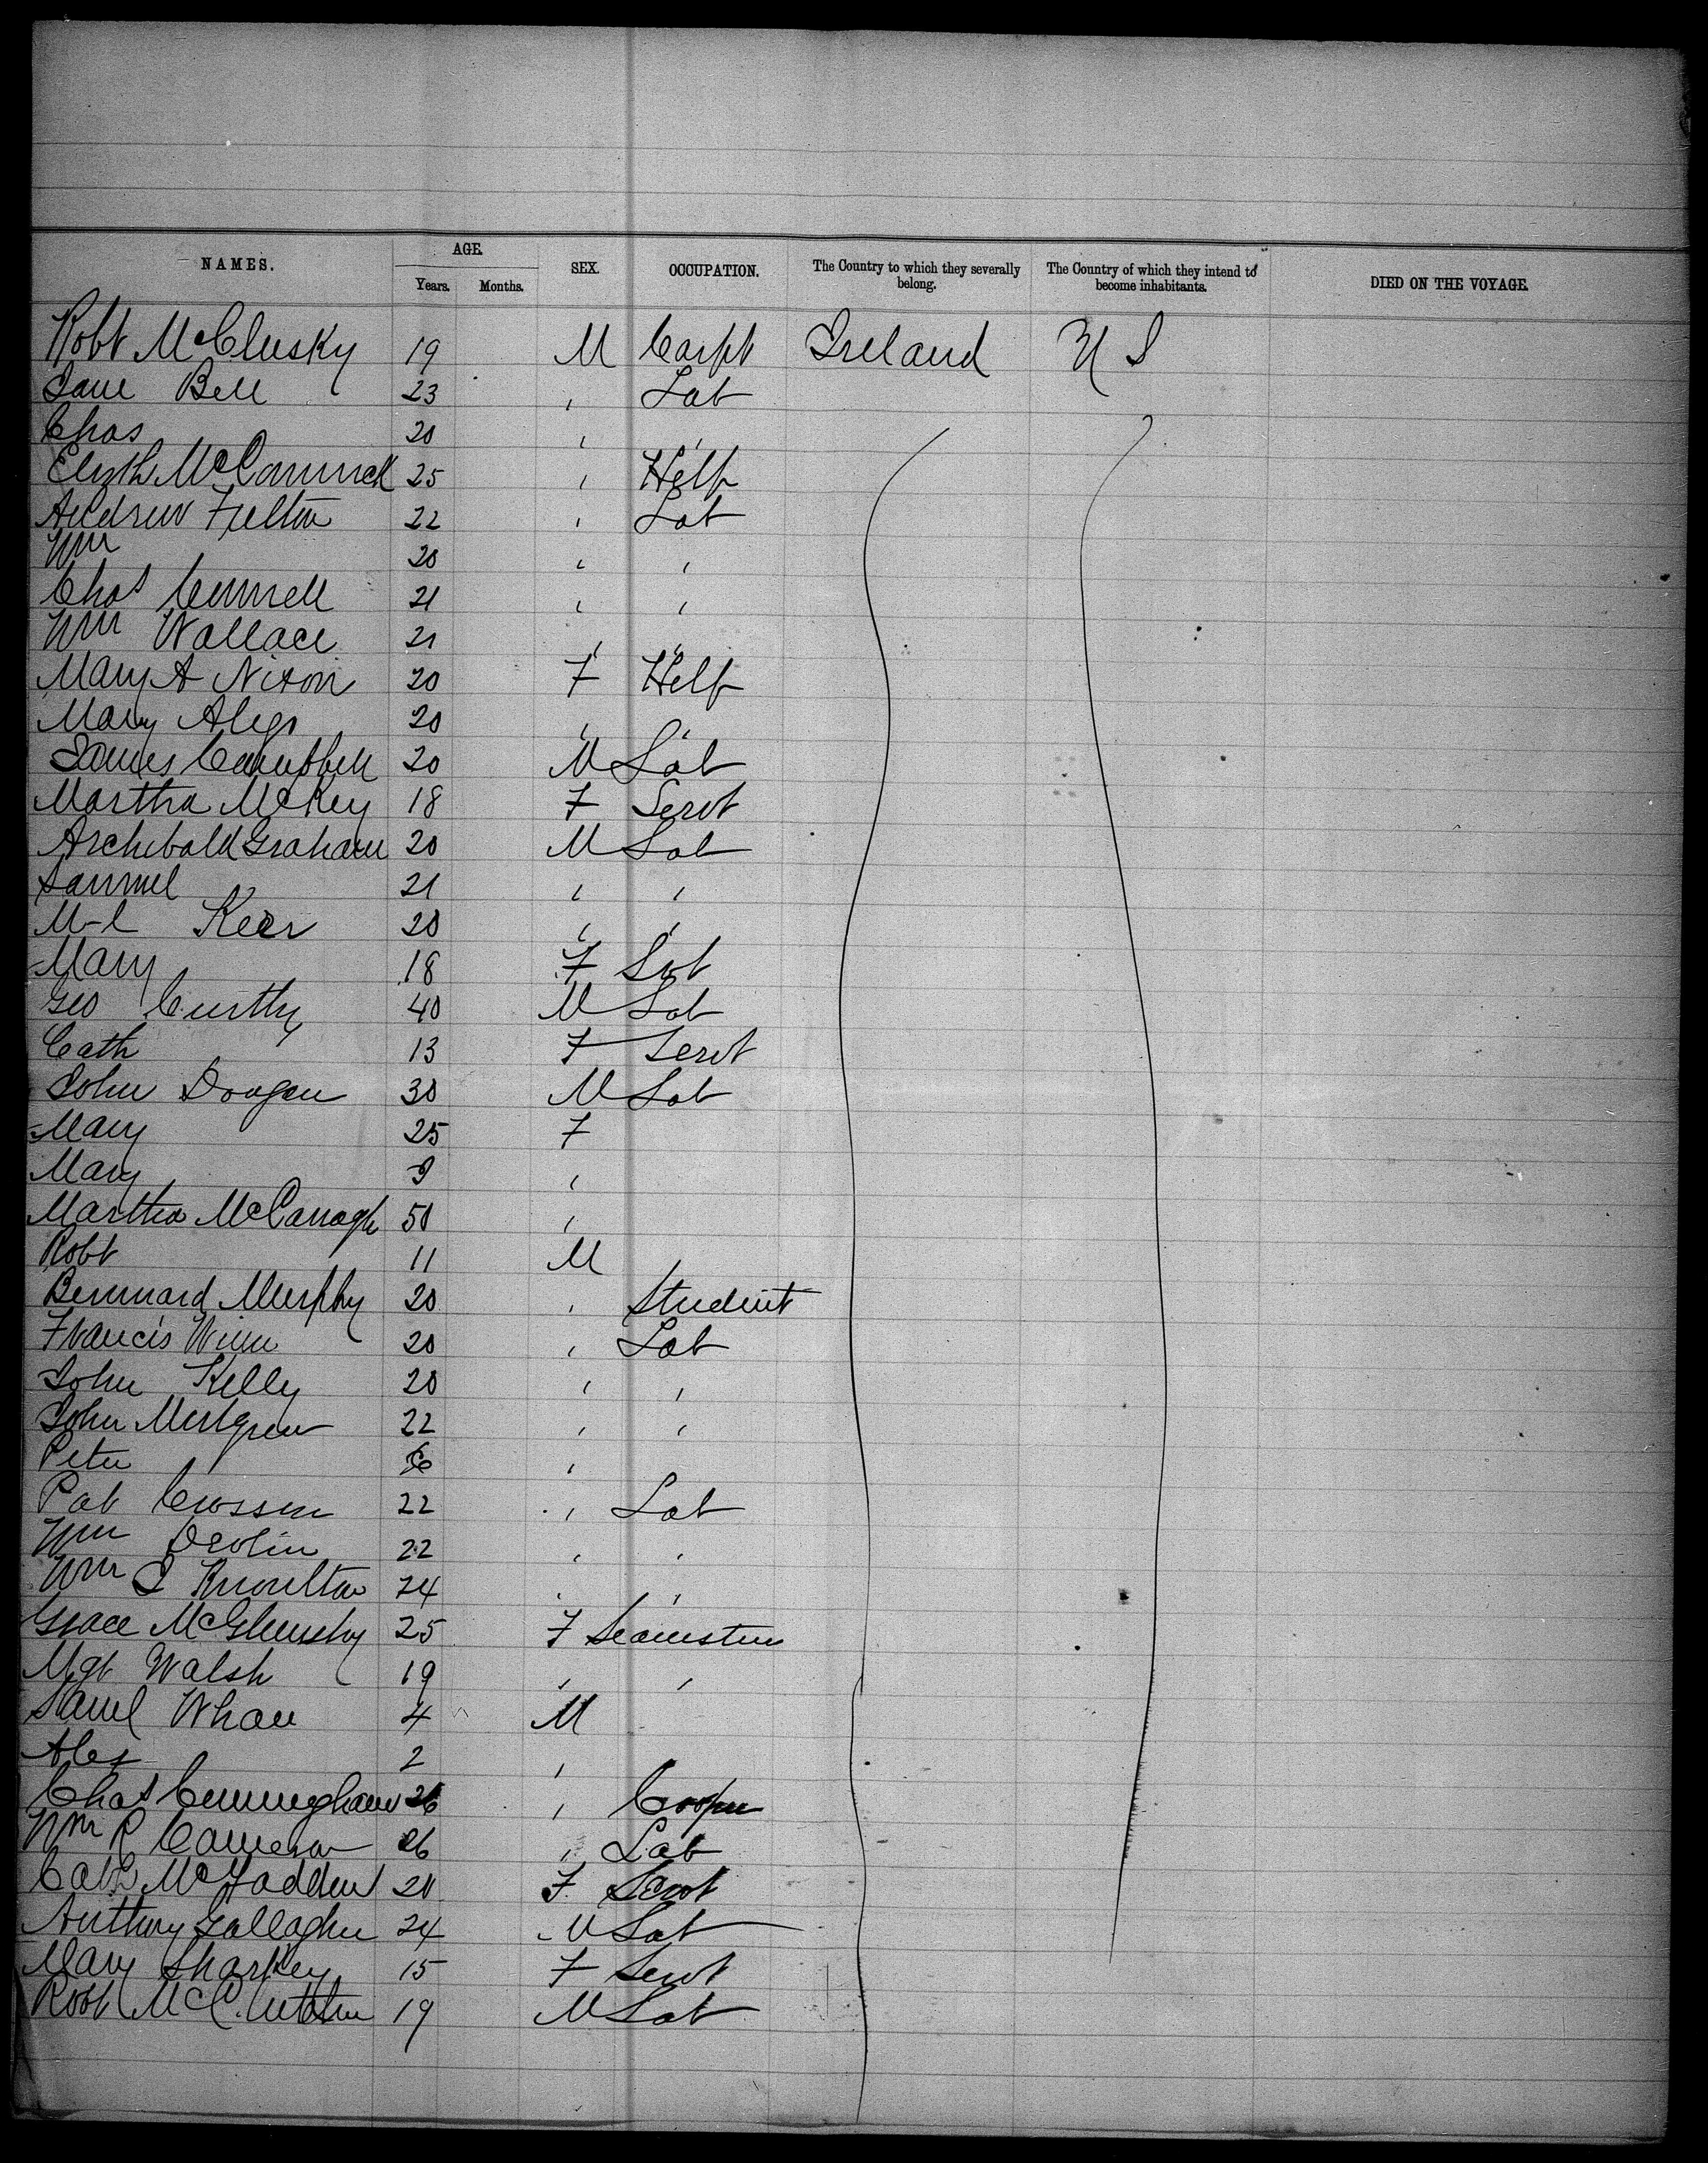 NAMES. AGE. Years. Months. SEX. OCCUPATION. The Country to which they severally belong. The Country of which they intend to become inhabitants. DIED ON THE VOYAGE.
Robt McClusky 19 M Carpt Ireland U S
Jane Bell 23 " Lab
Chas 20 " "
Elizth McCormick 25 " Help
Andrew Fulton 22 " Lab
Wm 20 " "
Chas Connell 21 " "
Wm Wallace 21 " "
Mary A Nixon 20 F Help
Mary 20 " "
James Campbell 20 M Lab
Martha McKey 18 F Servt
Archibald Graham 20 M Lab
Samuel 21 " "
M-l Keer 20 " "
Mary 18 F Svt
Geo 40 M Lab
Cath 13 F Servt
John Doogen 30 M Lab
Mary 25 F
Mary 9 "
Martha McConagh 50 "
Robt 11 M
Bernnard Murphy 20 " Student
Francis Winn 20 " Lab
John Kelly 20 " "
John 22 " "
Peter "
Pat Crossen 22 " Lab
Wm Devlin 22 " "
Wm J Knoulton 24 " "
Grace 25 F Seamster
Mgt Walsh 19 " "
Saml Whan 4 M
Alex 2 "
Chas Cunningham 26 " Cooper
Wm R Cameron 26 " Lab
Cath McFadden 20 F Servt
Anthony Gallagher 24 M Lab
Mary Sharkey 15 F Servt
Robt McCutchen 19 M Lab